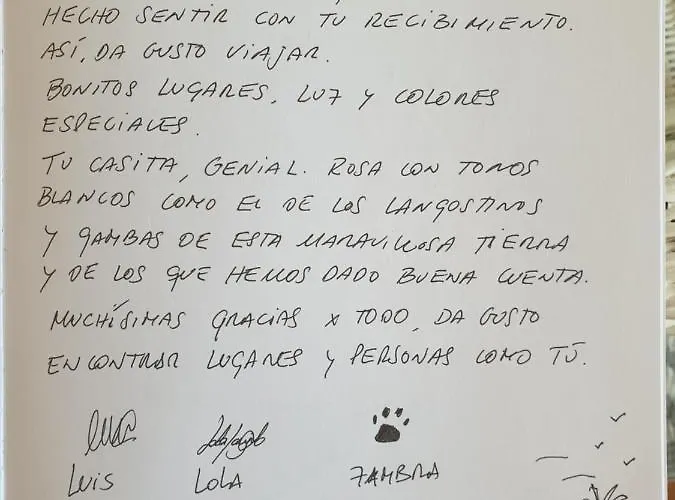 HECHO SENTIR CON TU RECIBIMIENTO.
ASÍ, DA GUSTO VIAJAR.
BONITOS LUGARES, LUZ Y COLORES
ESPECIALES.
TU CASITA, GENIAL. ROSA CON TONOS
BLANCOS COMO EL DE LOS LANGOSTINOS
Y GAMBAS DE ESTA MARAVILLOSA TIERRA
Y DE LOS QUE HEMOS DADO BUENA CUENTA.
MUCHÍSIMAS GRACIAS X TODO, DA GUSTO
ENCONTRAR LUGARES Y PERSONAS COMO TÚ.
LUIS LOLA ZAMBRA